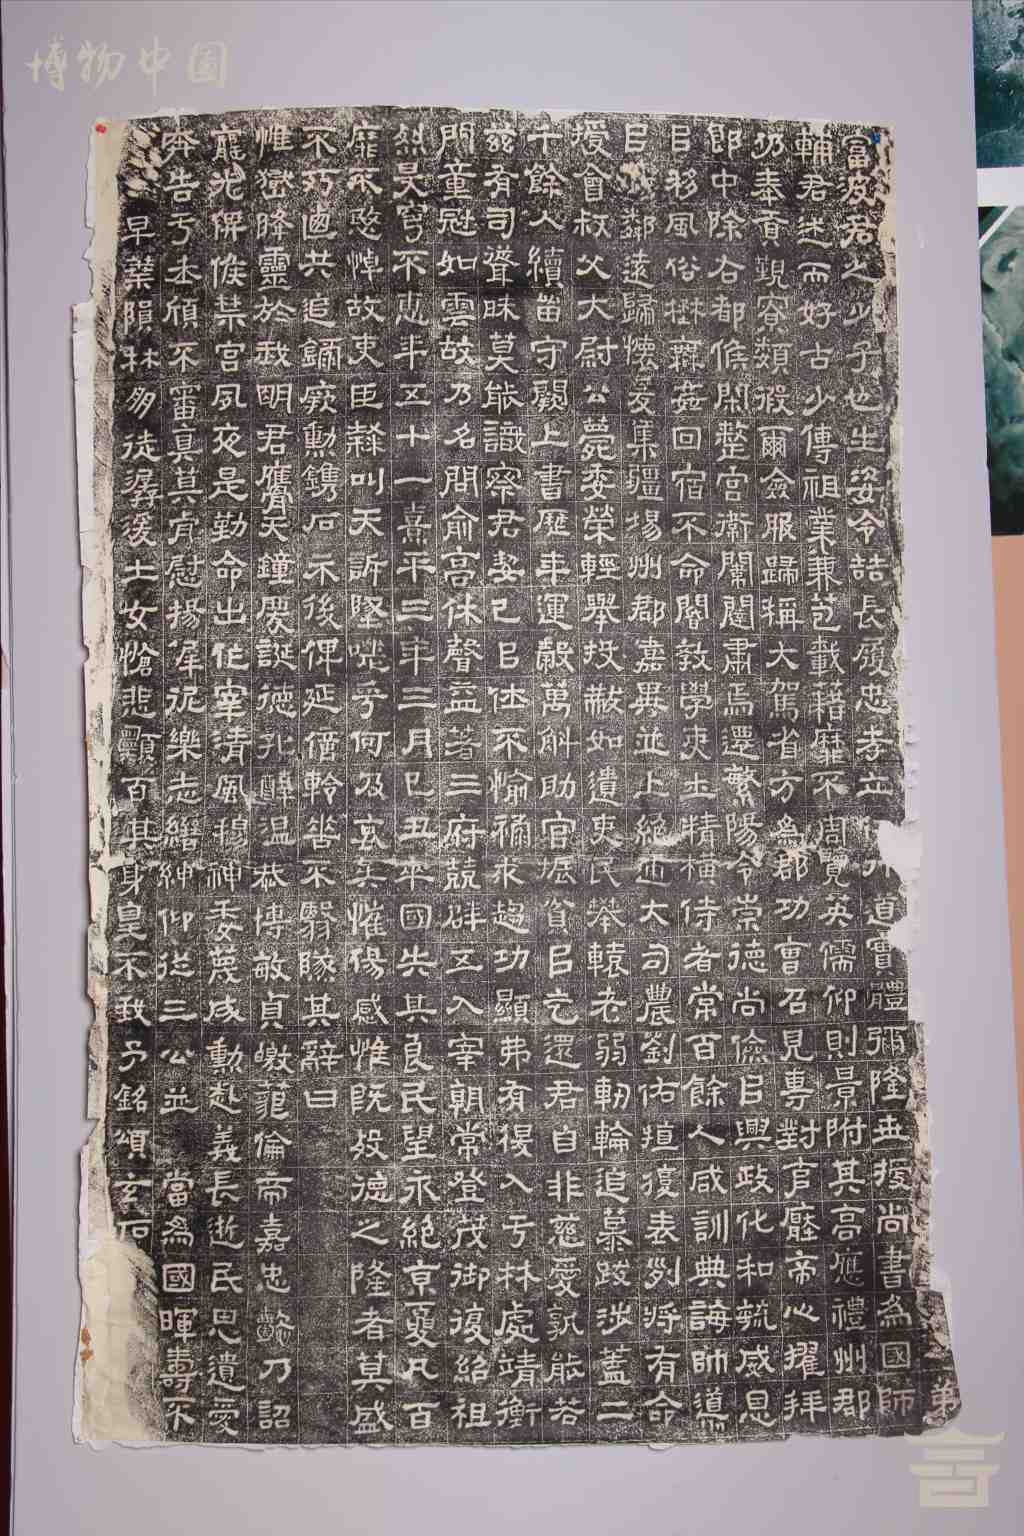 博物中国
第
富波君之少子也生姿令喆長履忠孝立道實體彌隆並授尚書為國師
輔君述而好古少傳祖業兼苞載藉靡不周覽英儒仰則景附其高應禮州郡
仍奉貢覲察類徵爾僉服歸稱大駕省方為郡功曹召見專對官帝心擢拜
郎中除右都侯閑整宮衛闈闥肅焉遷繁陽令崇德尚儉以興政化和毓威恩
以移風俗樹姦回宿不命閽敦學吏士精橫侍者常百餘人咸訓典誨帥導
以鄰遠歸懷憂集疆場州郡嘉異並上絕迹大司農劉佑復表列將有命
授會叔父大尉公薨委榮輕舉投黻如遺吏民攀轅老弱軔輪追慕跋涉蓋二
千餘人續留守闕上書歷年運穀萬斛助官振貧以乞還君自非慈愛孰能若
茲有司聳昧莫能識察君契己以仕不愉祿求趨功顯弗有得入亏林處靖衡
門童冠如雲故乃名問俞高休聲益著三府競辟五入宰朝常登茂御復紹祖
烈昊穹不惠年五十一熹平三年三月己丑卒國失其良民望永絕京夏凡百
靡不悼故吏臣隸叫天訴墜嗟乎何及玄矣慛傷感惟既歿德之隆者莫盛
不刃逌共追厥勳鐫石示後俾延億齡不翳隊其辭曰
惟嶽降靈於我明君膺天鐘慶誕德孔醇溫恭博敏貞皦藐倫帝嘉忠懿乃詔
寵光俾侯禁宮夙夜是勤命出作宰清風穆神委蔑成勳赴義長逝民思遺愛
奔告亏丕不審真莫肯慰揚樂志縉紳仰從三公並當為國暉壽不
早葉隕林徒潺湲士女愴悲顯百其身皇不我予銘頌玄石